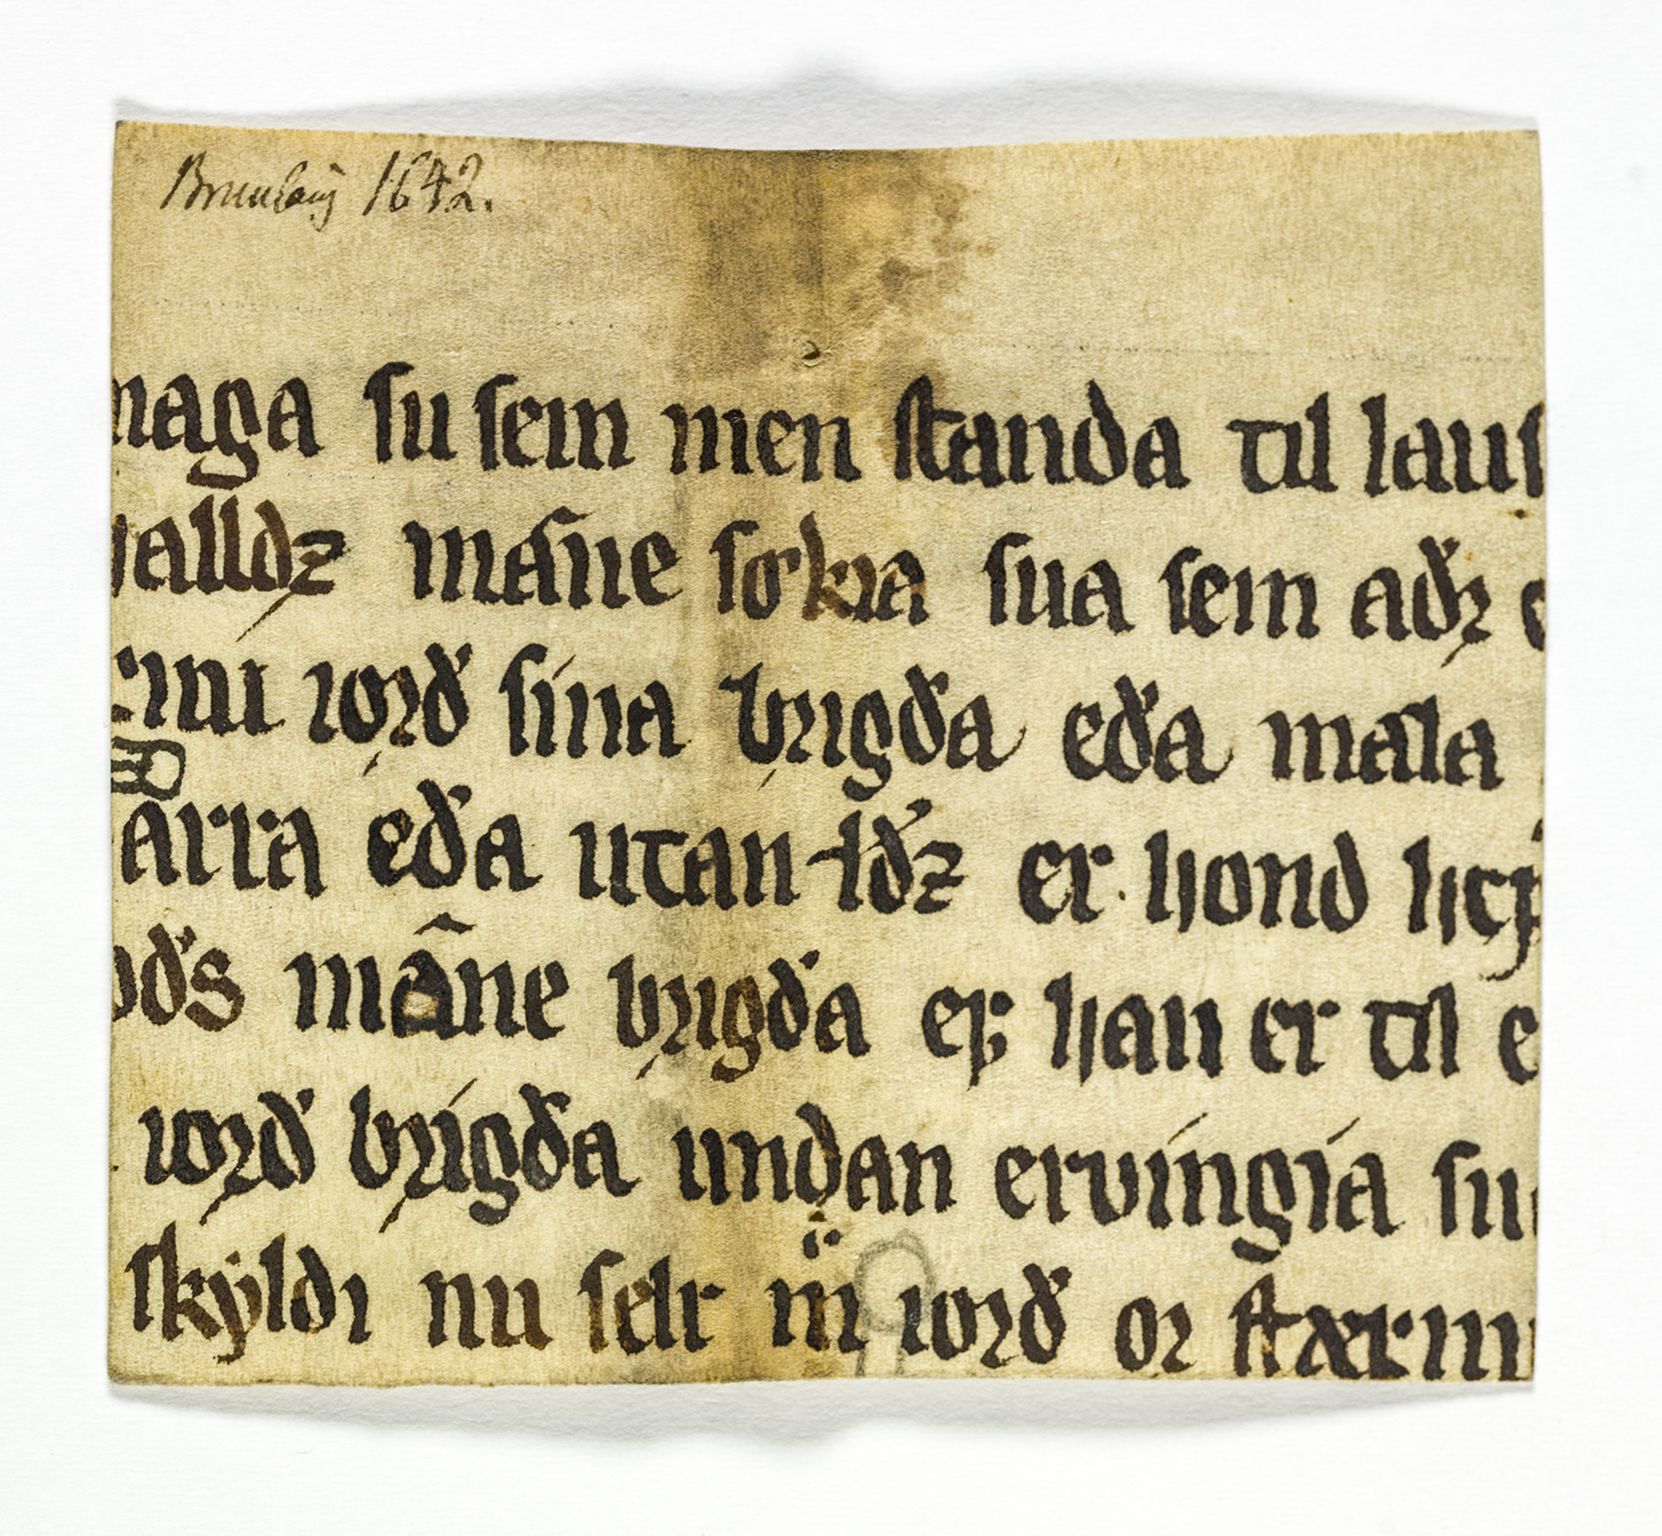 Brunlaug 1642.
maga ſu ſem men ſtanda til lauſ
valldz máne ſøkia ſua ſem aðꝛ
inu ioꝛð ſína bꝛigða eða mála
arra eða utan łðz er hond
oðs mâne bꝛigða eꝼ han er til e
ioꝛð bꝛígða undan ervíngía ſu
ſkẏldi nu ſelr m̈ ioꝛð oꝛ ſtærm